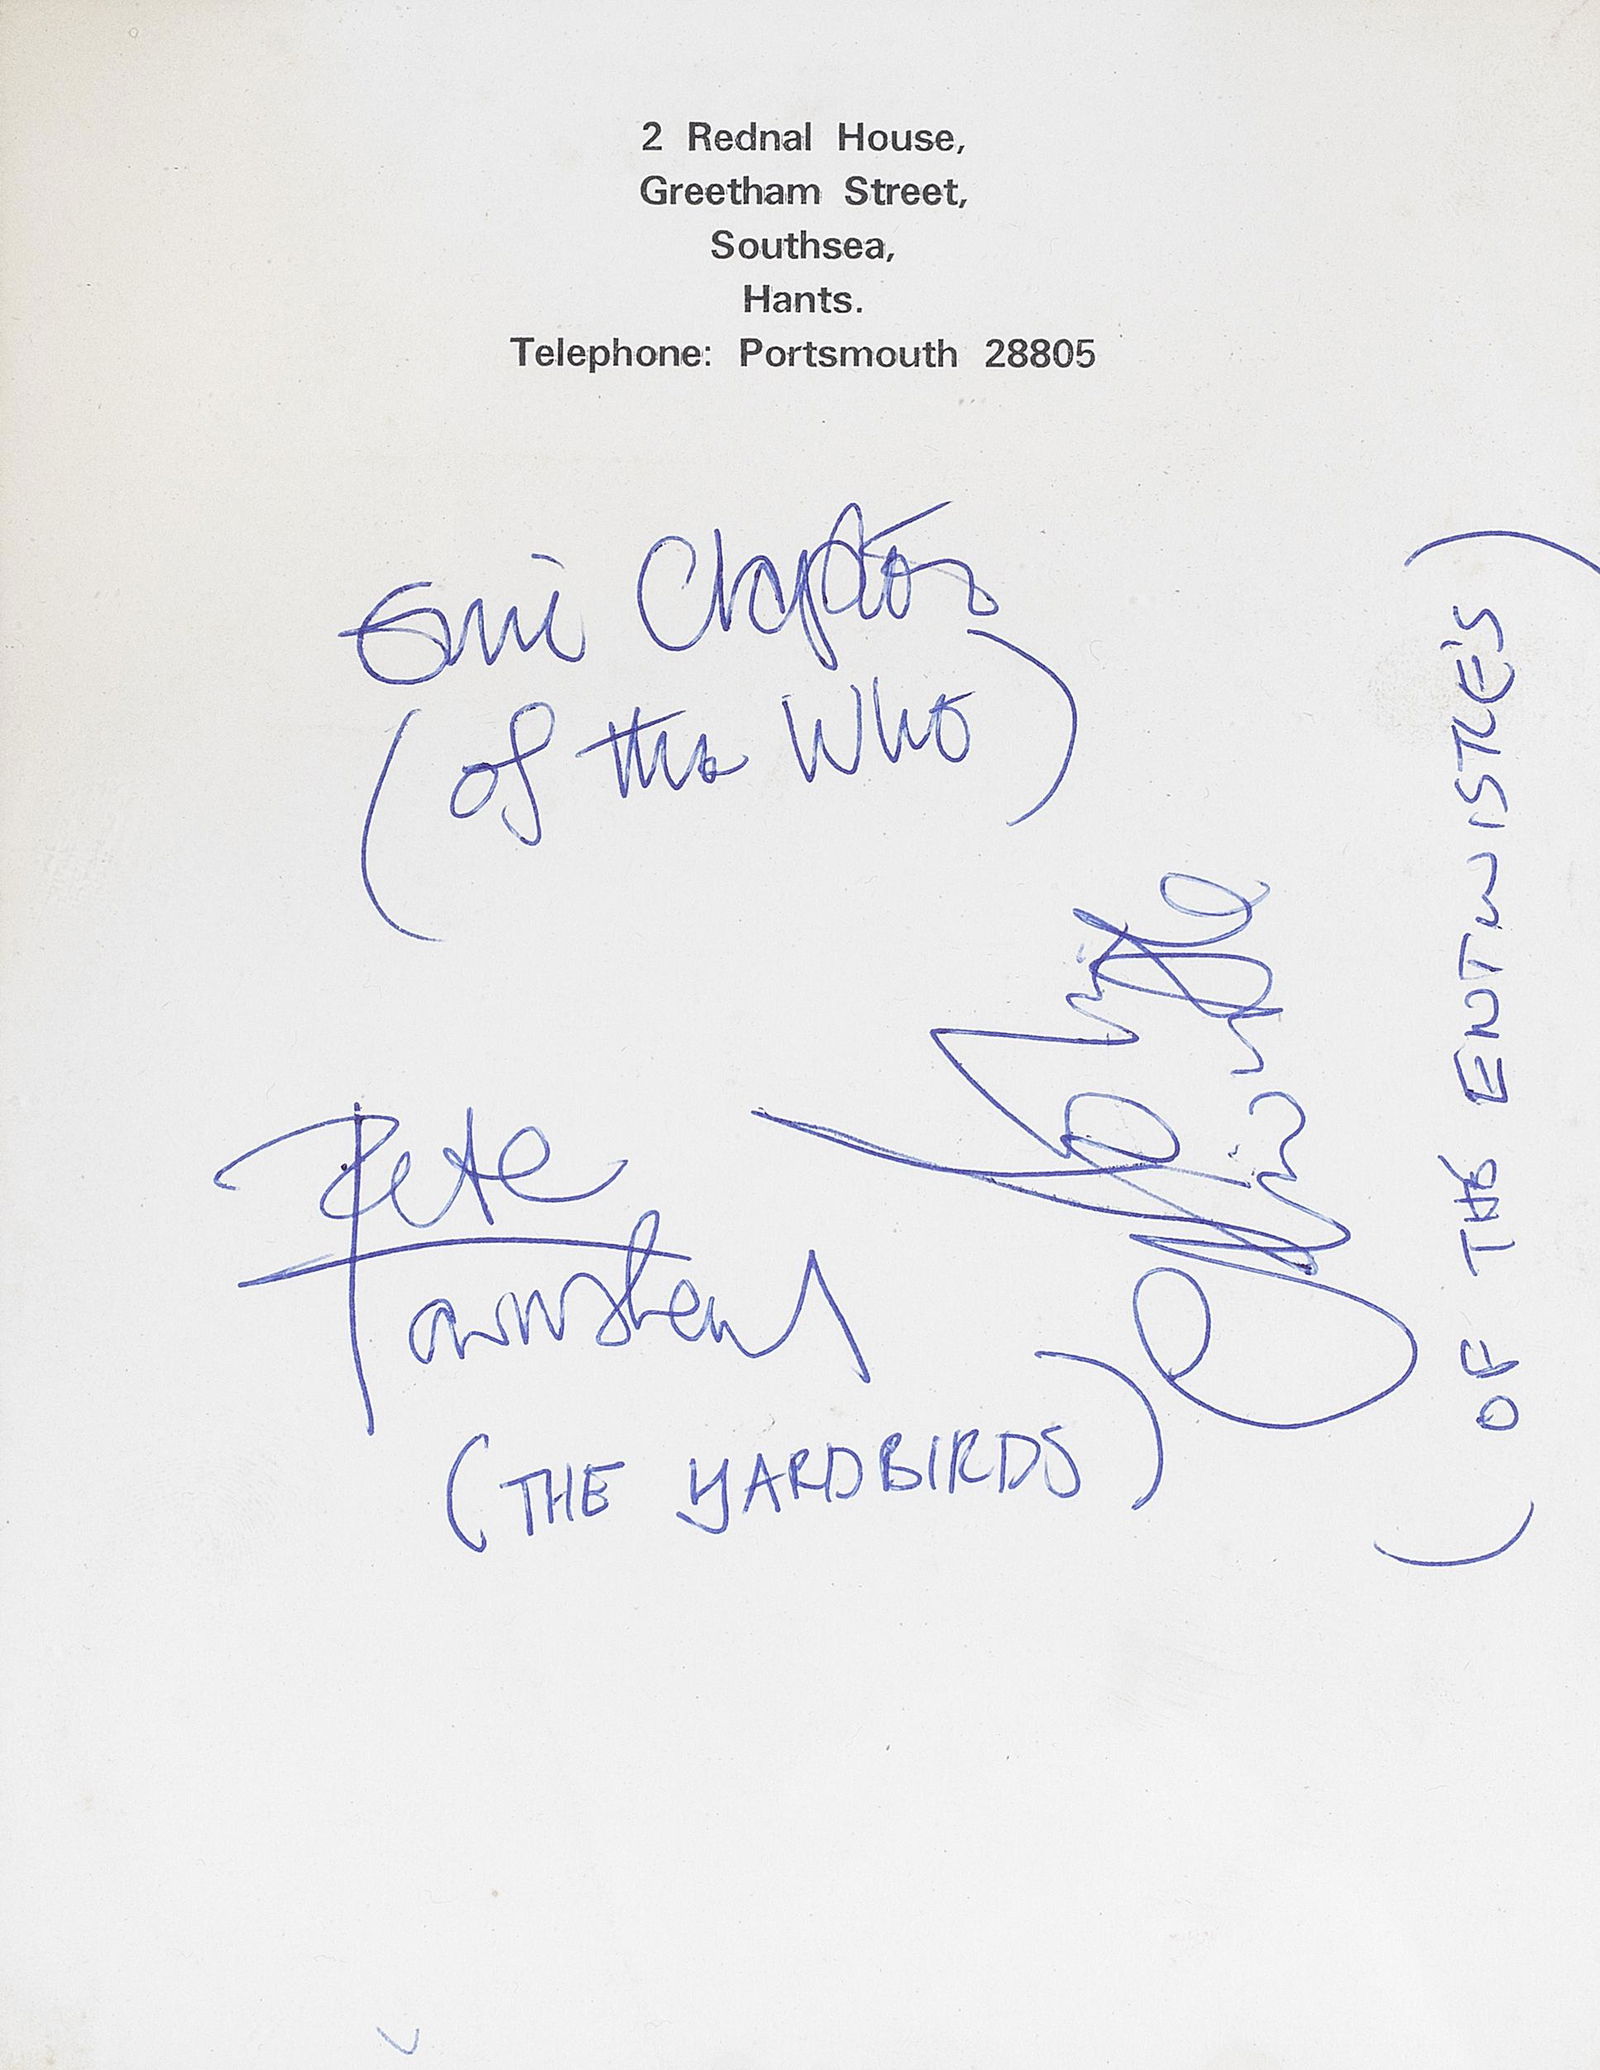 2 Rednal House,
Greetham Street,
Southsea,
Hants.
Telephone: Portsmouth 28805
Eric Clapton
(of the Who)
Pete
Townshend
(THE YARDBIRDS)
John
Entwistle
(OF THE ENTWISTLE'S)